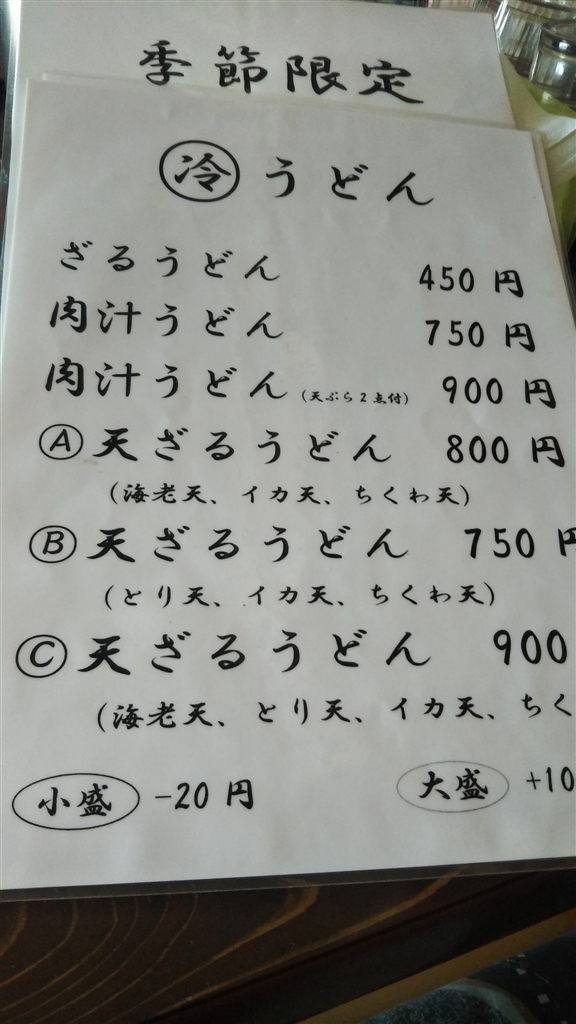 季節限定
冷うどん
ざるうどん 450円
肉汁うどん 750円
肉汁うどん(天ぷら2点付) 900円
Ⓐ天ざるうどん 800円
(海老天、イカ天、ちくわ天)
Ⓑ天ざるうどん 750円
(とり天、イカ天、ちくわ天)
Ⓒ天ざるうどん 900
(海老天、とり天、イカ天、ちく
小盛 -20円 大盛 +10